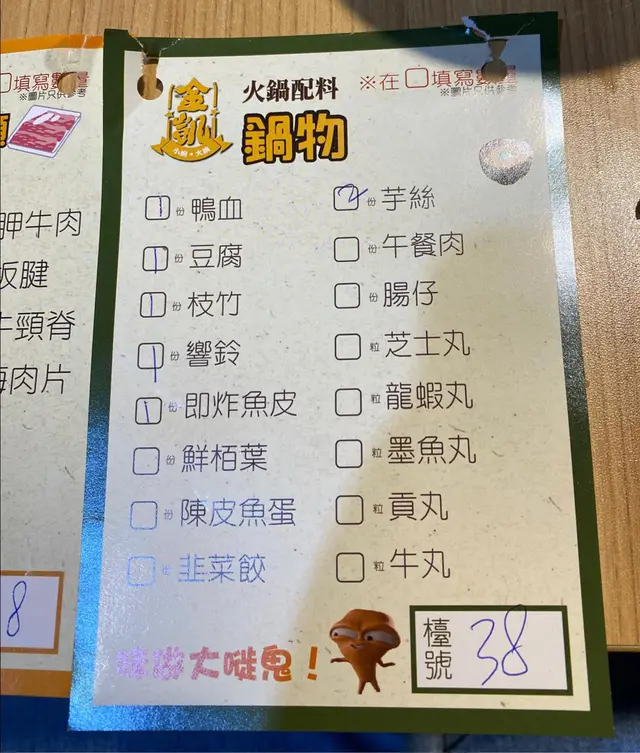 填寫數量
※圖片只供參考
胛牛肉
板腱
牛頸脊
肉片
8
金凱
小廚·火鍋
火鍋配料
鍋物
※在□填寫數量
※圖片只供參考
1 份 鴨血
1 份 豆腐
1 份 枝竹
1 份 響鈴
1 份 即炸魚皮
份 鮮栢葉
份 陳皮魚蛋
份 韭菜餃
2 份 芋絲
份 午餐肉
份 腸仔
粒 芝士丸
粒 龍蝦丸
粒 墨魚丸
粒 貢丸
粒 牛丸
大嘥鬼!
檯號 38